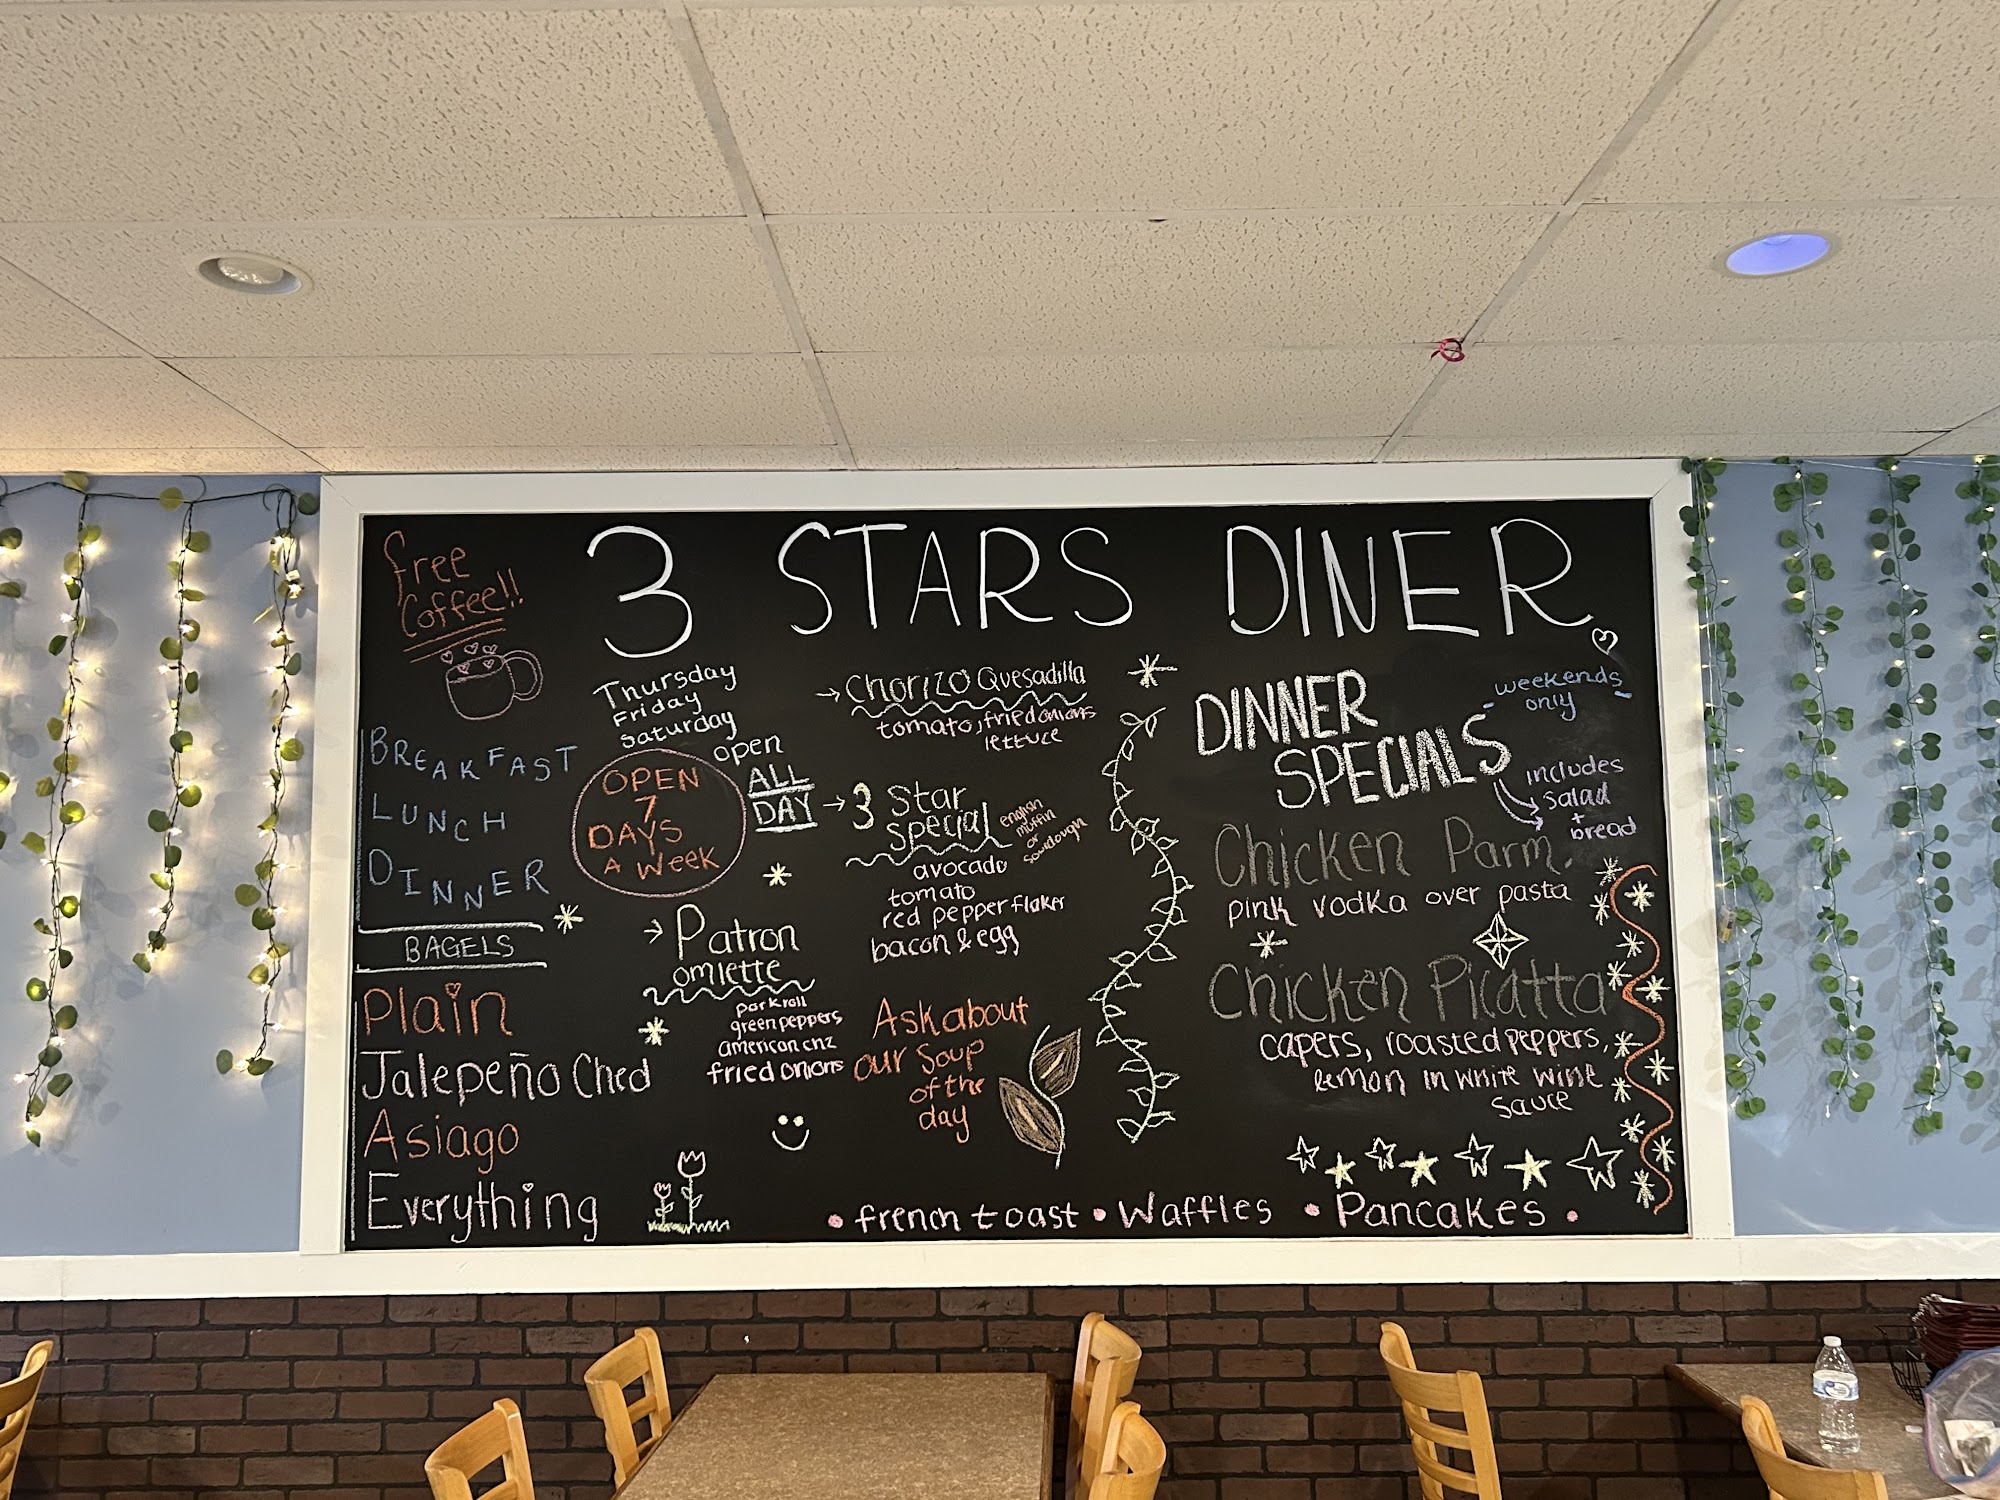 3 STARS DINER
free
Coffee!!
BREAKFAST
LUNCH
DINNER
BAGELS
Plain
Jalepeño Ched
Asiago
Everything
Thursday
Friday
Saturday
open
ALL
DAY
OPEN
7
DAYS
A WEEK
→ Patron
omlette
pork roll
green peppers
american chz
fried onions
→ Chorizo Quesadilla
tomato, fried onions
lettuce
→ 3 Star
special
english
muffin
or
sourdough
avocado
tomato
red pepper flakes
bacon & egg
Ask about
our Soup
of the
day
DINNER
SPECIALS
- weekends -
only
includes
salad
+
bread
Chicken Parm.
pink vodka over pasta
Chicken Picatta
capers, roasted peppers,
lemon in white wine
sauce
• french toast • Waffles • Pancakes •